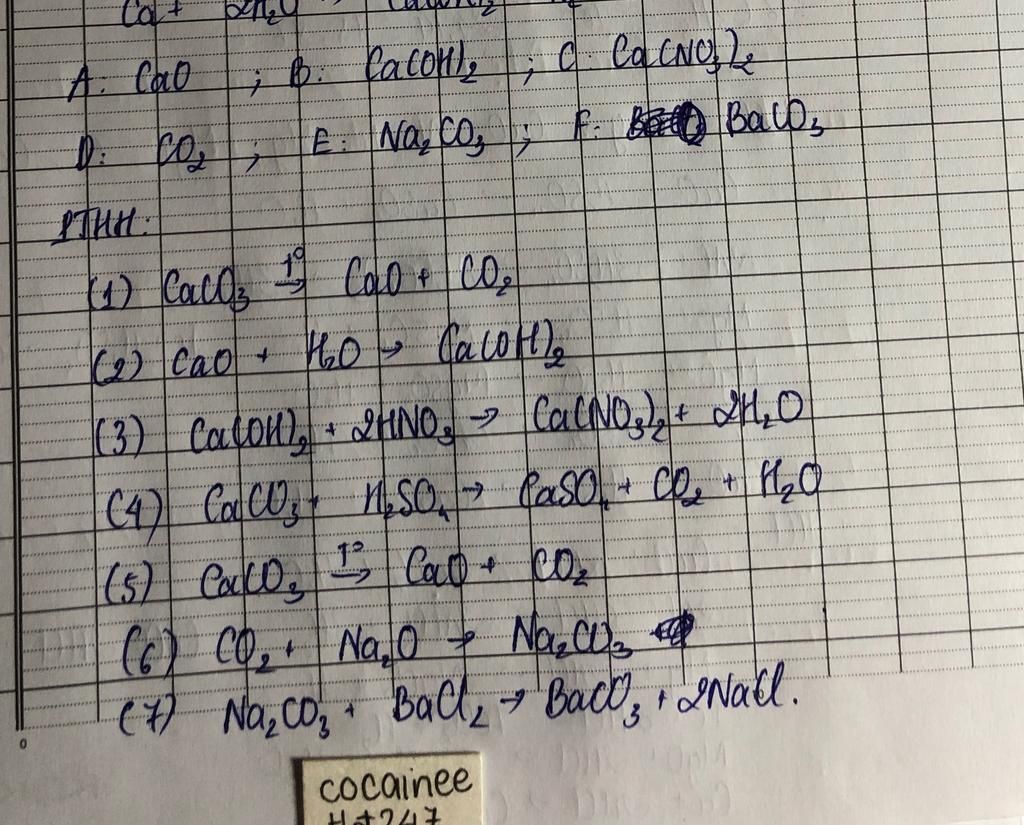 Ca + 2H₂O
A: CaO ; B: Ca(OH)₂ ; C: Ca(NO₃)₂
D: CO₂ ; E: Na₂CO₃ ; F: BaCO₃
PTHH:
(1) CaCO₃ t°→ CaO + CO₂
(2) CaO + H₂O → Ca(OH)₂
(3) Ca(OH)₂ + 2HNO₃ → Ca(NO₃)₂ + 2H₂O
(4) CaCO₃ + H₂SO₄ → CaSO₄ + CO₂ + H₂O
(5) CaCO₃ t°→ CaO + CO₂
(6) CO₂ + Na₂O → Na₂CO₃
(7) Na₂CO₃ + BaCl₂ → BaCO₃ + 2NaCl.
cocainee